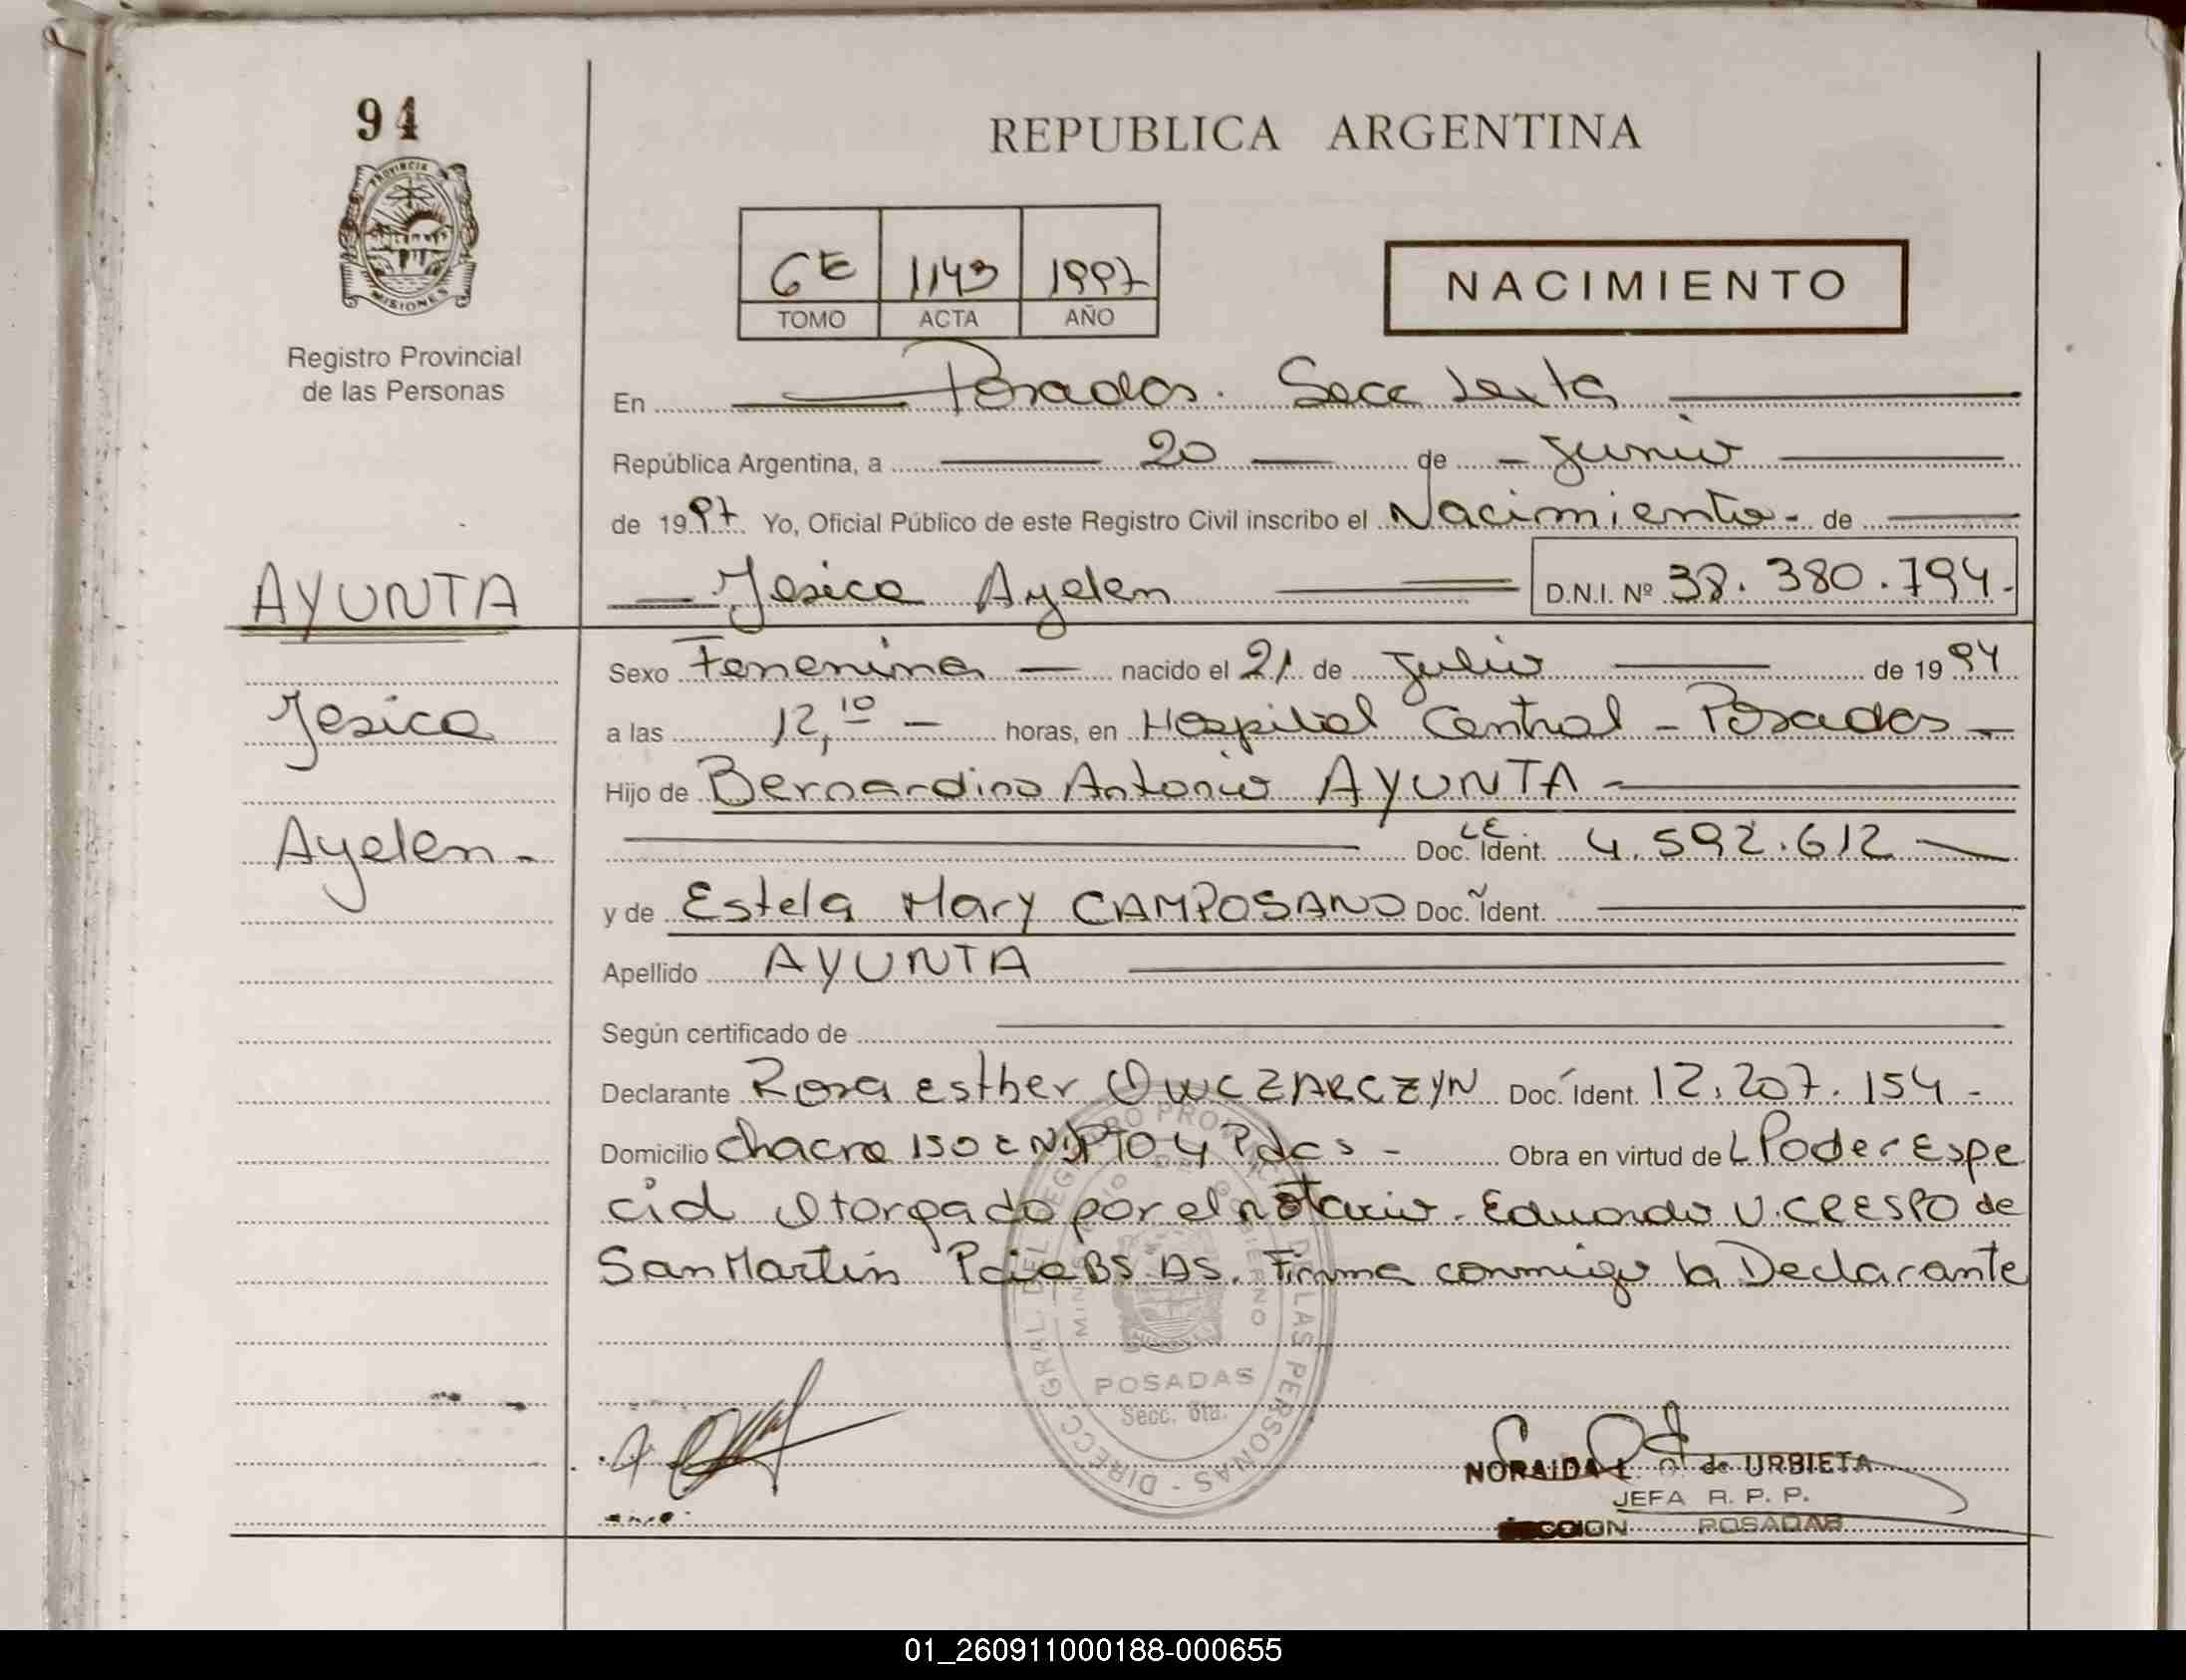 94
PROVINCIA
MISIONES
Registro Provincial
de las Personas
REPUBLICA ARGENTINA
6E 1143 1997
TOMO ACTA AÑO
NACIMIENTO
En Posadas. Secc Sexta
República Argentina, a 20 de Junio
de 1997 Yo, Oficial Público de este Registro Civil inscribo el Nacimiento - de
AYUNTA
Jesica Ayelen D.N.I. Nº 38.380.794.-
Sexo Femenina nacido el 21 de Julio de 1994
Jesica
a las 12,10 horas, en Hospital Central - Posadas -
Hijo de Bernardino Antonio AYUNTA -
Ayelen -
Doc. Ident. L.E. 4.592.612
y de Estela Mary CAMPOSANO Doc. Ident.
Apellido AYUNTA
Según certificado de
Declarante Rosa Esther OWCZARCZYN Doc. Ident. 12.207.154 -
Domicilio Chacra 150 Pdas - Obra en virtud deL Poder Espe
cial Otorgado por el notario. Eduardo V. CRESPO de
San Martín Pcia BS. AS. Firma conmigo la Declarante
DIRECC. GRAL. DEL REGISTRO PROVINCIAL DE LAS PERSONAS -
MINISTERIO DE GOBIERNO
POSADAS
Secc. 6ta.
NORAIDA L. de URBIETA
JEFA R. P. P.
SECCION POSADAS
01_260911000188-000655